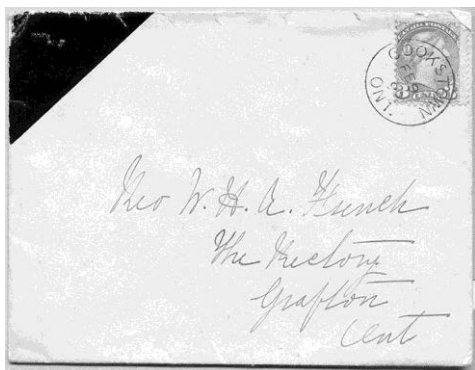 COOKSTOWN
FE
ONT.
Rev W. H. A. French
The Rectory
Grafton
Ont